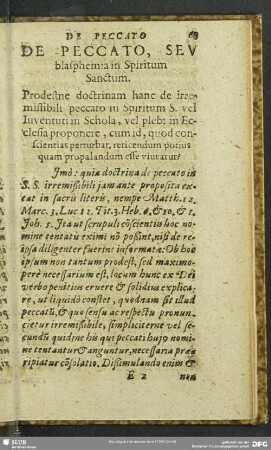 DE PECCATO 68
DE PECCATO, SEV
blasphemia in Spiritum
Sanctum.
Prodestne doctrinam hanc de irre
missibili peccato in Spiritum S. vel
Iuventuti in Schola, vel plebi in Ec-
clesia proponere, cum id, quod con-
scientias perturbat, reticendum potius
quam propalandum esse videatur?
Imò: quia doctrina de peccato in
S. S. irremissibili jam ante proposita ex-
eat in sacris literis, nempe Matth. 12.
Marc. 3. Luc. 12. Tit. 3. Heb. 6. & 10, & 1.
Joh. 5. Ita ut scrupuli cõscientiis hoc no-
mine tentatis eximi nõ possint, nisi de re
ipsa diligenter fuerint informatæ: Ob hoc
ipsum non tantum prodest, sed maximo-
perè necessarium est, locum hunc ex Dei
verbo penitius eruere & solidius explica-
re, ut liquidò constet, quodnam sit illud
peccatũ, & quo sensu ac respectu pronun-
cietur irremissibile, simpliciterne vel se-
cundũ quid: ne his qui peccati hujo nomi-
ne tentantur & anguntur, necessaria præ-
ripiatur cõsolatio. Dissimulando enim &
E 2
SLUB